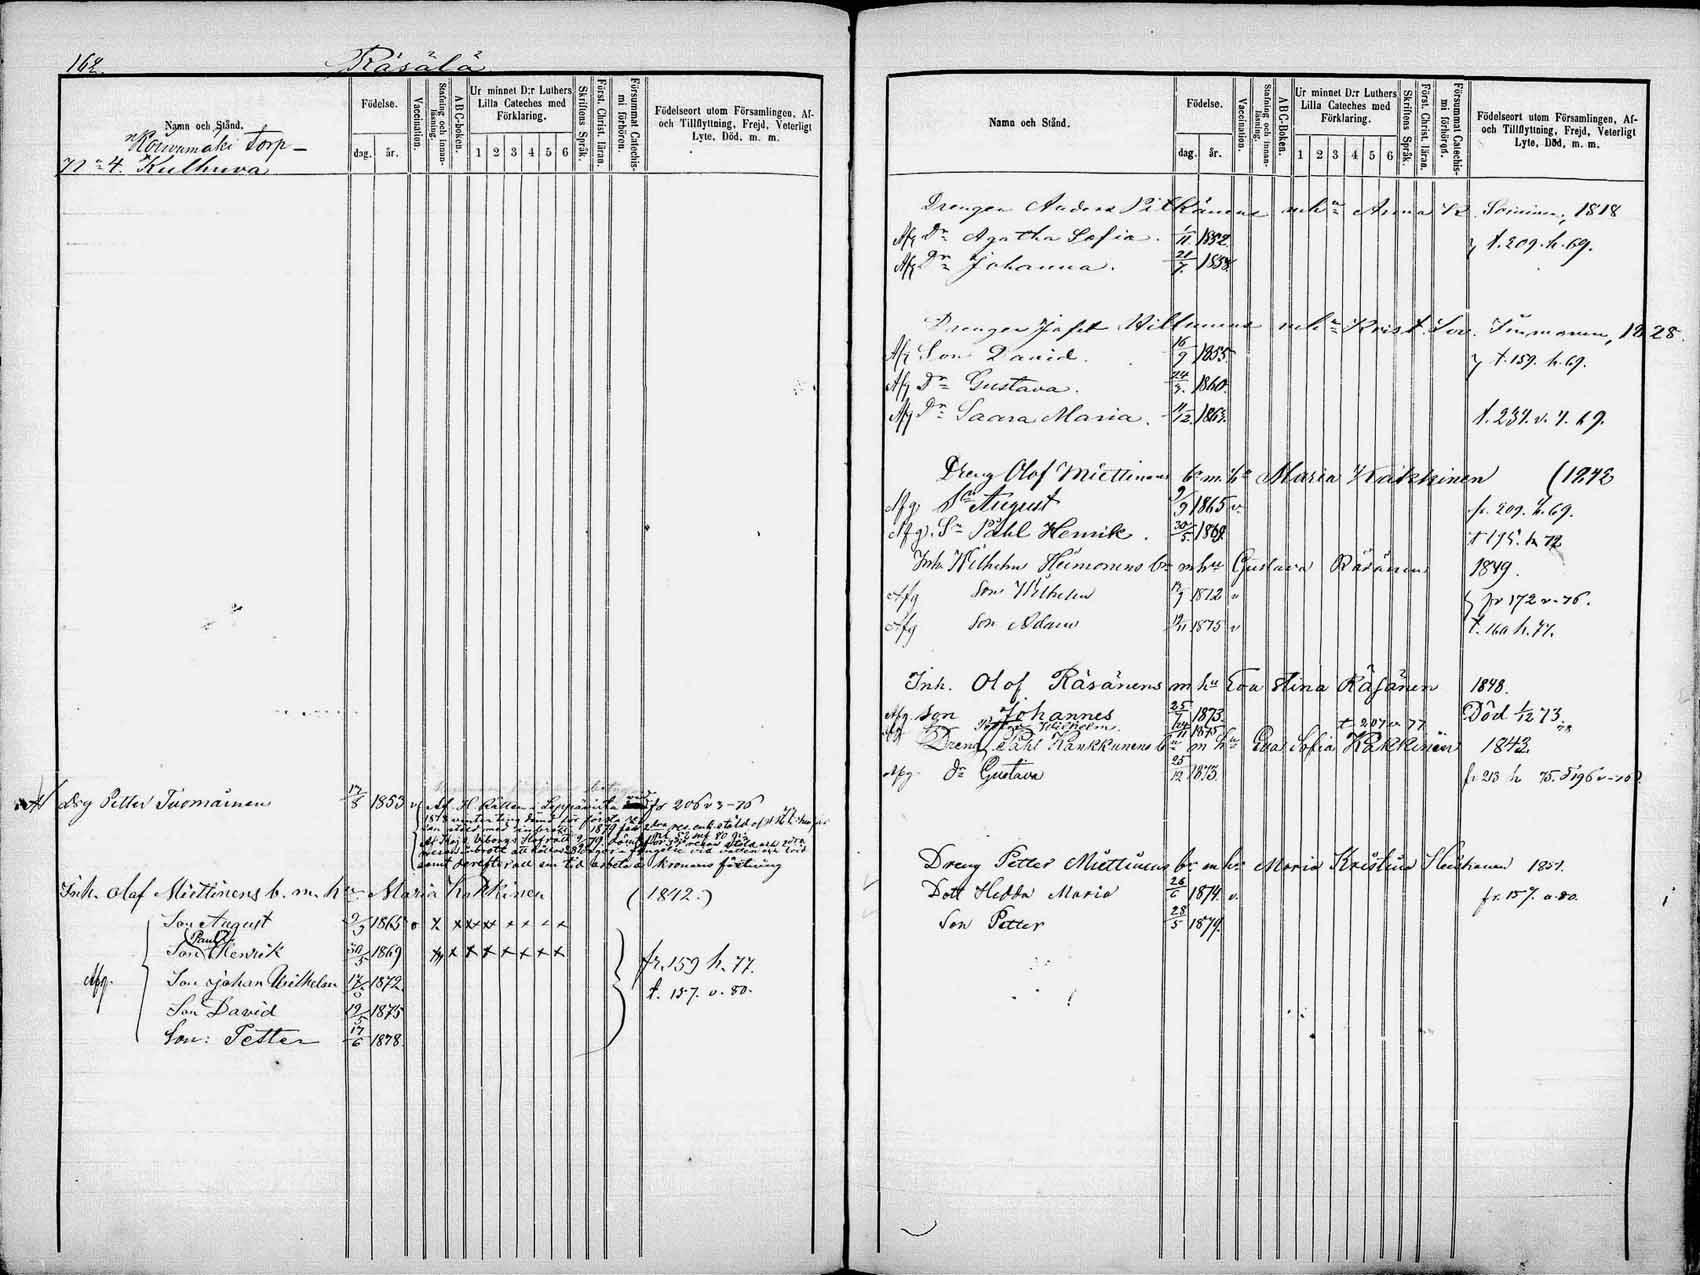 162.
Räsälä
Namn och Stånd.
Födelse.
dag.
år.
Vaccination.
Stafning och innanläsning.
A B C-boken.
Ur minnet D:r Luthers Lilla Cateches med Förklaring.
1 2 3 4 5 6
Skriftens Språk.
Först. Christ. läran.
Försummat Catechismi förhören.
Födelseort utom Församlingen, Af- och Tillflyttning, Frejd, Veterligt Lyte, Död. m. m.
Koivumäki Torp
No 4. Kulhuva
Drg Petter Tuomainen 17/8 1853 v fr 206 v 3-76
samt derefter all sin tid arbeta å kronans fästning
Inh. Olof Miettinens b. m. hu Maria Kakkinen (1842.)
Son August 9/9 1865 v x x x x x x x x
Son Paul Henrik 30/5 1869 x x x x x x x x fr. 159 h. 77.
Afg. Son Johan Wilhelm 17/8 1872. t. 157. v. 80.
Son David 19/5 1875
Son: Petter 17/6 1878.
Namn och Stånd.
Födelse.
dag.
år.
Vaccination.
Stafning och innanläsning.
A B C-Boken.
Ur minnet D:r Luthers Lilla Cateches med Förklaring.
1 2 3 4 5 6
Skriftens Språk.
Först. Christ. läran.
Försummat Catechismi förhören.
Födelseort utom Församlingen, Af- och Tillflyttning, Frejd, Veterligt Lyte, Död, m. m.
Drengen Anders Pitkänens mhu Anna K. Soininen, 1818
Afg Dr Agatha Sofia. 1/11 1852 t. 209. h. 69.
Afg Dr Johanna. 21/7 1858
Drengen Jafet Miettinens mhu Krist. Sov. Immonen, 1828.
Afg Son David. 16/9 1855 t. 159. h. 69.
Afg Dr Gustava. 24/3. 1860
Afg Dr Saara Maria. 11/12. 1863. t. 237. v. 4. 69.
Dreng Olof Miettinens b. m. hu Maria Kakkinen (1842
Afg. Sn August 9/9 1865 v. fr. 209. h. 69.
Afg. Sn Påhl Henrik. 30/5 1869 t 175. h 72
Inh. Wilhelm Heimonens b. mhu Gustava Räsänen 1849.
Afg Son Wilhelm 1872 v fr 172 v. 76.
Afg Son Adam 1875 v t. 160 h. 77.
Inh. Olof Räsänens m hu Eva Stina Räsänen 1848.
Afg. Son Johannes 25/7 1873 Död 1/12 73.
Petter Wilhelm 24/11 1875 t 207 v 77
Dreng Påhl Kankkunens b. m hu Eva Sofia Kakkinen 1842
Afg. Dr Gustava 25/12 1873 fr 213 h 75. t 196 v-76
Dreng Petter Miettinens br. m hu Maria Kristina Heiskanen 1851.
Dott Hedda Maria 26/6 1874. v. fr. 157. v. 80.
Son Petter 28/5 1879.